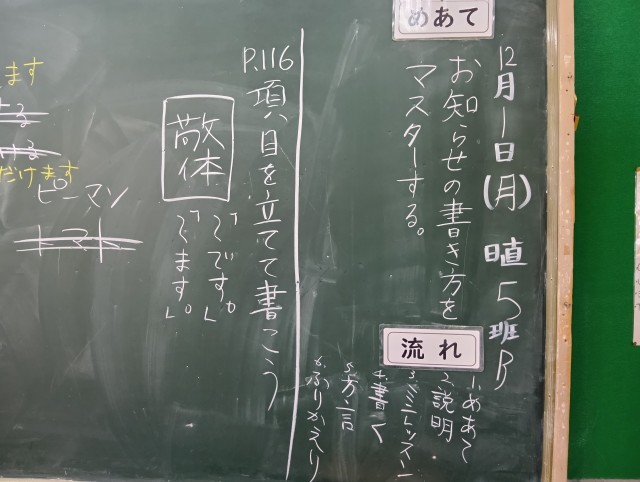 12月1日(月) 晴 5班B
めあて
お知らせの書き方を
マスターする。
流れ
1.めあて
2.説明
3.ミニレッスン
4.書く
5.方言
6.ふりかえり
P.116 項目を立てて書こう
敬体
「〜です。」
「〜ます。」
ピーマン
トマト
ます
だけます